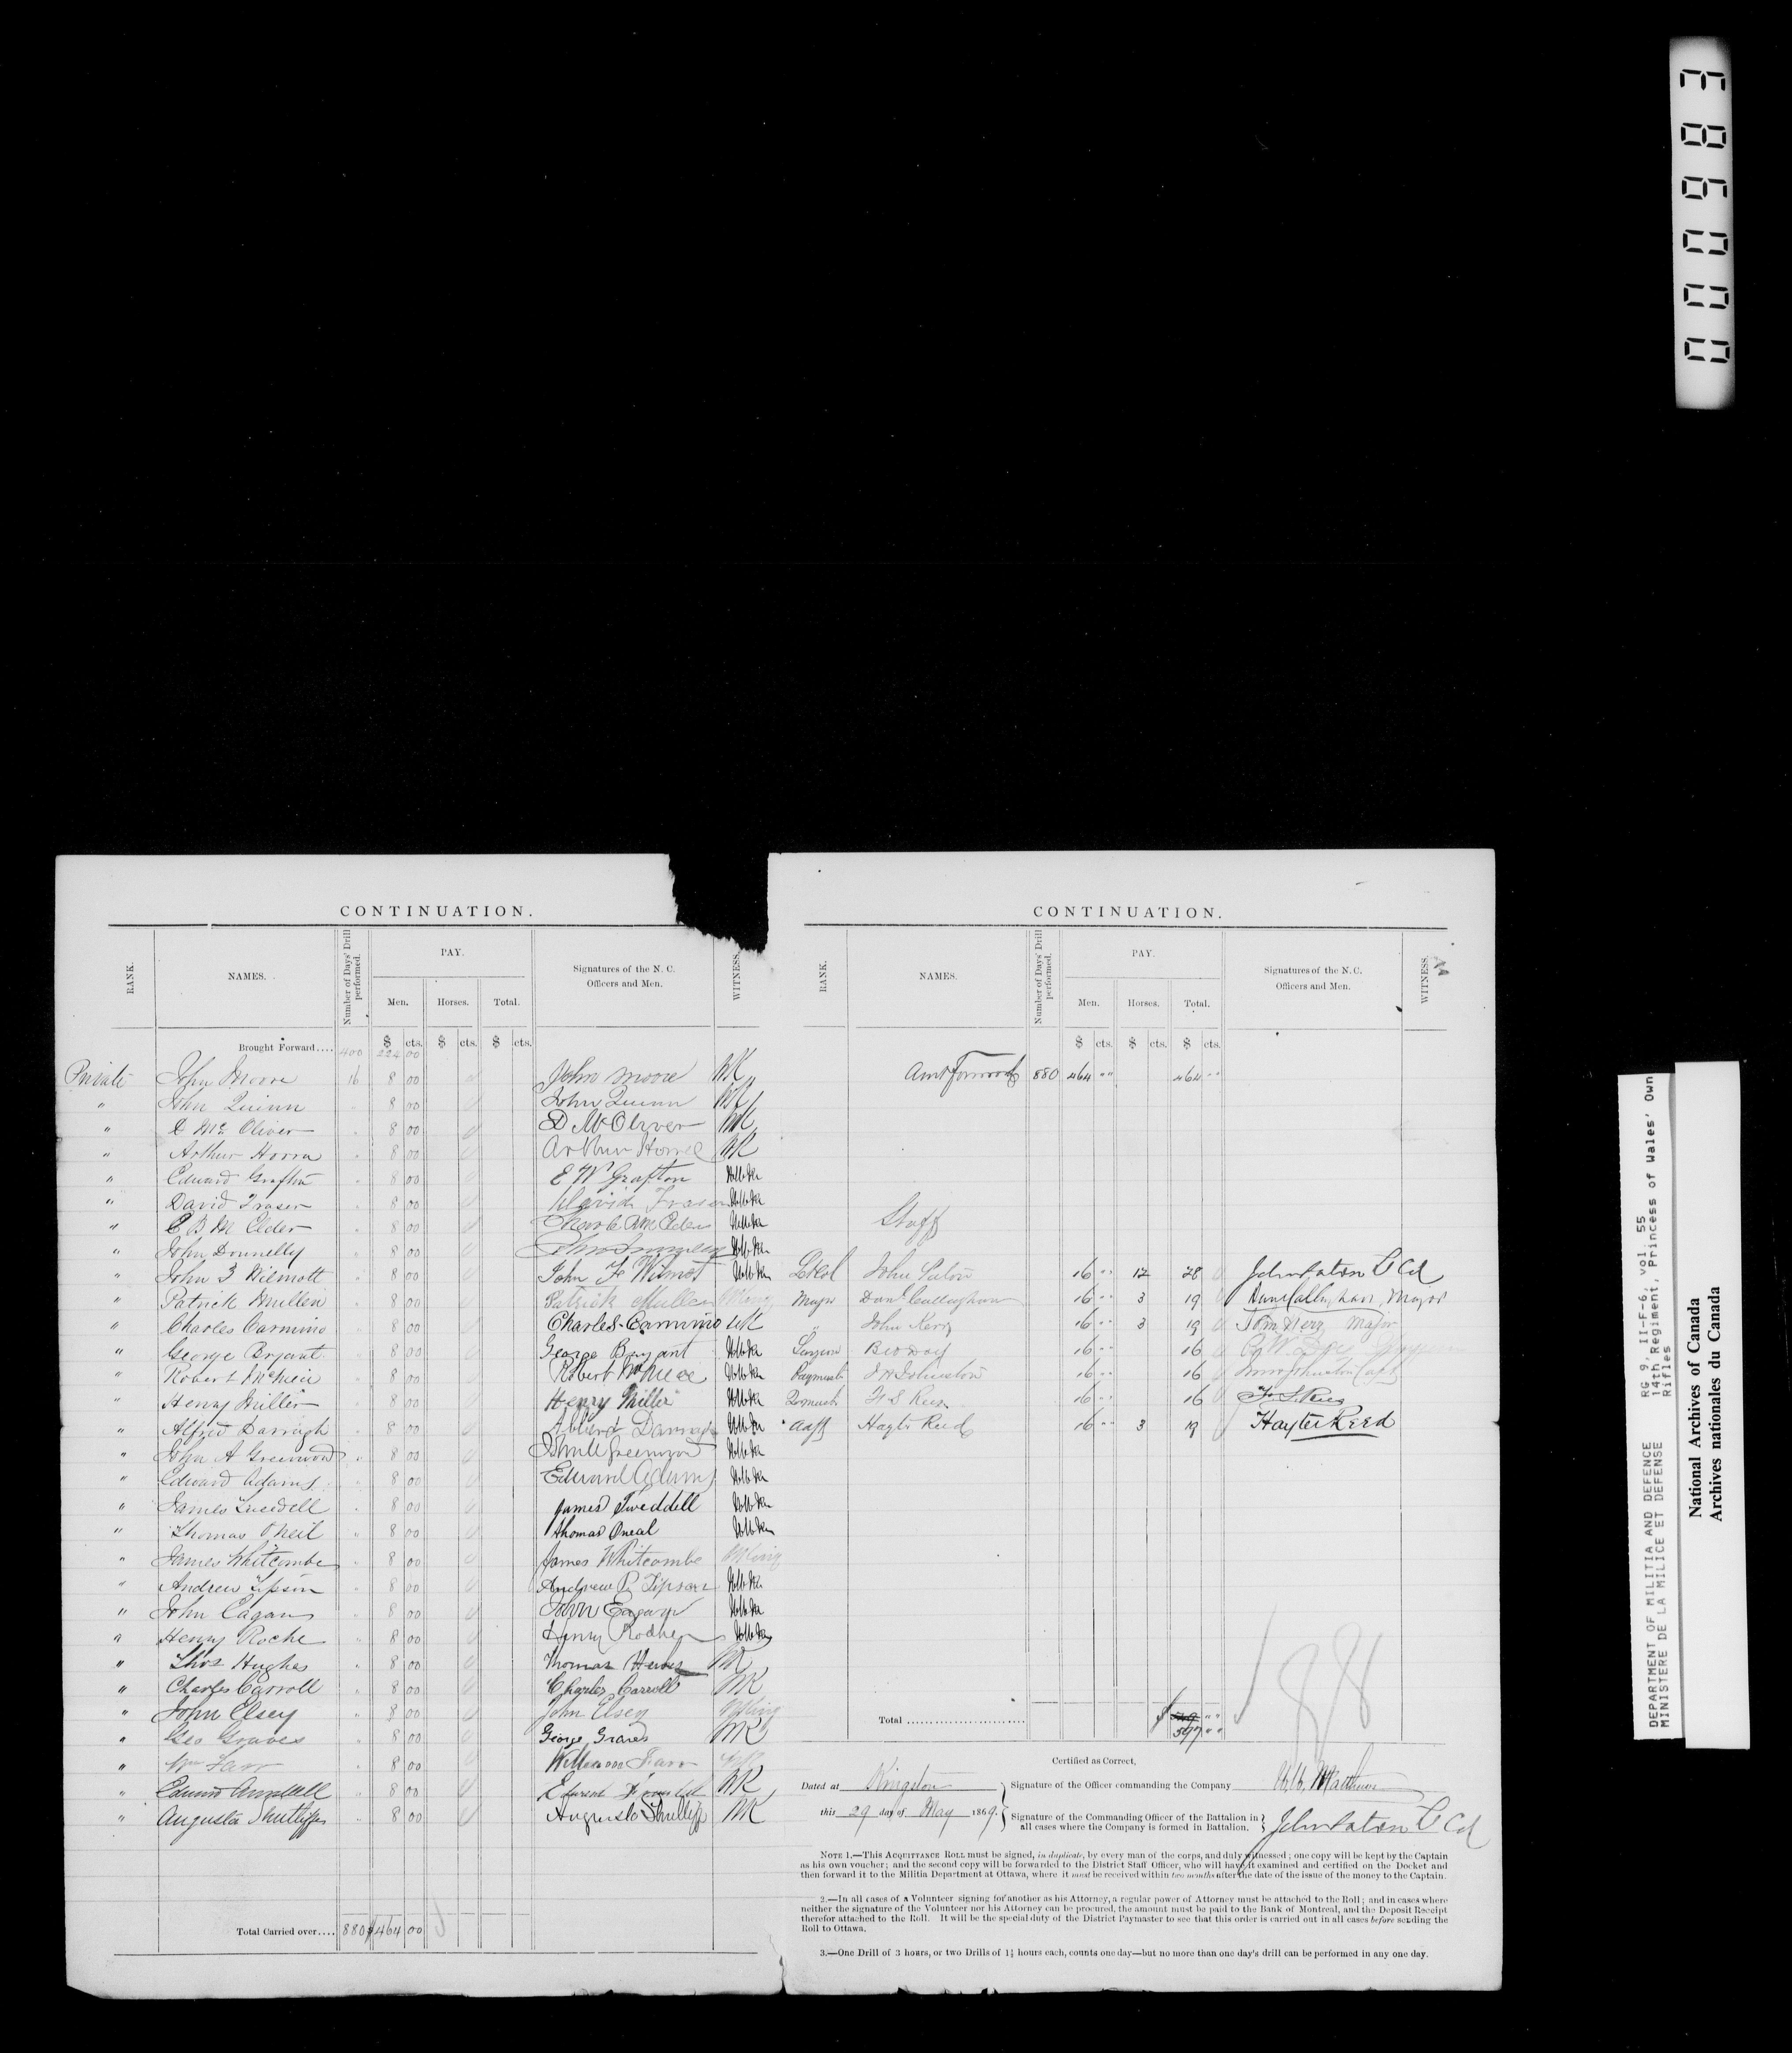 CONTINUATION.
RANK.
NAMES.
Number of Days' Drill performed.
PAY.
Men.
Horses.
Total.
Signatures of the N. C. Officers and Men.
WITNESS.
$ cts. $ cts. $ cts.
Brought Forward.... 400 224 00
Private John Moore 16 8 00 John Moore WK
" John Quinn " 8 00 John Quinn WK
" Mc Oliver " 8 00 D McOliver WK
" Arthur " 8 00 Arthur WK
" Edward Grafton " 8 00 E W Grafton
" David Fraser " 8 00 David Fraser
" C B M Elder " 8 00
" John Donnelly " 8 00
" John F Wilmott " 8 00 John F Wilmot
" Patrick Mullen " 8 00 Patrick Mullen
" Charles Carmino " 8 00 Charles Carmino WK
" George Bryant " 8 00 George Bryant
" Robert " 8 00 Robert
" Henry Miller " 8 00 Henry Miller
" Alfred Darragh " 8 00 Darragh
" John A Greenwood " 8 00
" Edward Adams " 8 00 Edward Adams
" James Tweddell " 8 00 James Tweddell
" Thomas O'Neil " 8 00 Thomas Oneal
" James Whitcombe " 8 00 James Whitcombe
" Andrew Lipson " 8 00 Andrew P Lipson
" John Eagan " 8 00 John Eagan
" Henry Roche " 8 00 Henry
" Thos Hughes " 8 00 Thomas WK
" Charles Carroll " 8 00 Charles Carroll WK
" John Elsey " 8 00 John Elsey
" Geo Graves " 8 00 George Graves WK
" Wm Farr " 8 00 William Farr
" Edmund " 8 00 WK
" Augusta " 8 00 WK
Total Carried over.... 880 $464 00
CONTINUATION.
RANK.
NAMES.
Number of Days' Drill performed.
PAY.
Men.
Horses.
Total.
Signatures of the N. C. Officers and Men.
WITNESS.
$ cts. $ cts. $ cts.
Amt Forward 880 464 " " 464 " "
Staff
Lt Col John Paton 16 " " 12 28 John Paton Lt Col
Major Danl Callaghan 16 " " 3 19 Danl Callaghan, Major
" John Kerr 16 " " 3 19 John Kerr Major
Surgeon 16 " " 16
Paymast Johnston 16 " " 16 Johnston Capt
Qrmast F S Rees 16 " " 16 F. S. Rees
Adjt Hayter Reed 16 " " 3 19 Hayter Reed
Total ........................ $ 597 " "
Certified as Correct,
Dated at Kingston
this 29 day of May 1869.
Signature of the Officer commanding the Company
Signature of the Commanding Officer of the Battalion in all cases where the Company is formed in Battalion. John Paton Lt Col
NOTE 1.—This ACQUITTANCE ROLL must be signed, in duplicate, by every man of the corps, and duly witnessed; one copy will be kept by the Captain
as his own voucher; and the second copy will be forwarded to the District Staff Officer, who will have it examined and certified on the Docket and
then forward it to the Militia Department at Ottawa, where it must be received within two months after the date of the issue of the money to the Captain.
2.—In all cases of a Volunteer signing for another as his Attorney, a regular power of Attorney must be attached to the Roll; and in cases where
neither the signature of the Volunteer nor his Attorney can be procured, the amount must be paid to the Bank of Montreal, and the Deposit Receipt
therefor attached to the Roll. It will be the special duty of the District Paymaster to see that this order is carried out in all cases before sending the
Roll to Ottawa.
3.—One Drill of 3 hours, or two Drills of 1½ hours each, counts one day—but no more than one day's drill can be performed in any one day.
000983
DEPARTMENT OF MILITIA AND DEFENCE RG 9, II-F-6, vol. 55
MINISTERE DE LA MILICE ET DEFENSE 14th Regiment, Princess of Wales' Own
Rifles
National Archives of Canada
Archives nationales du Canada